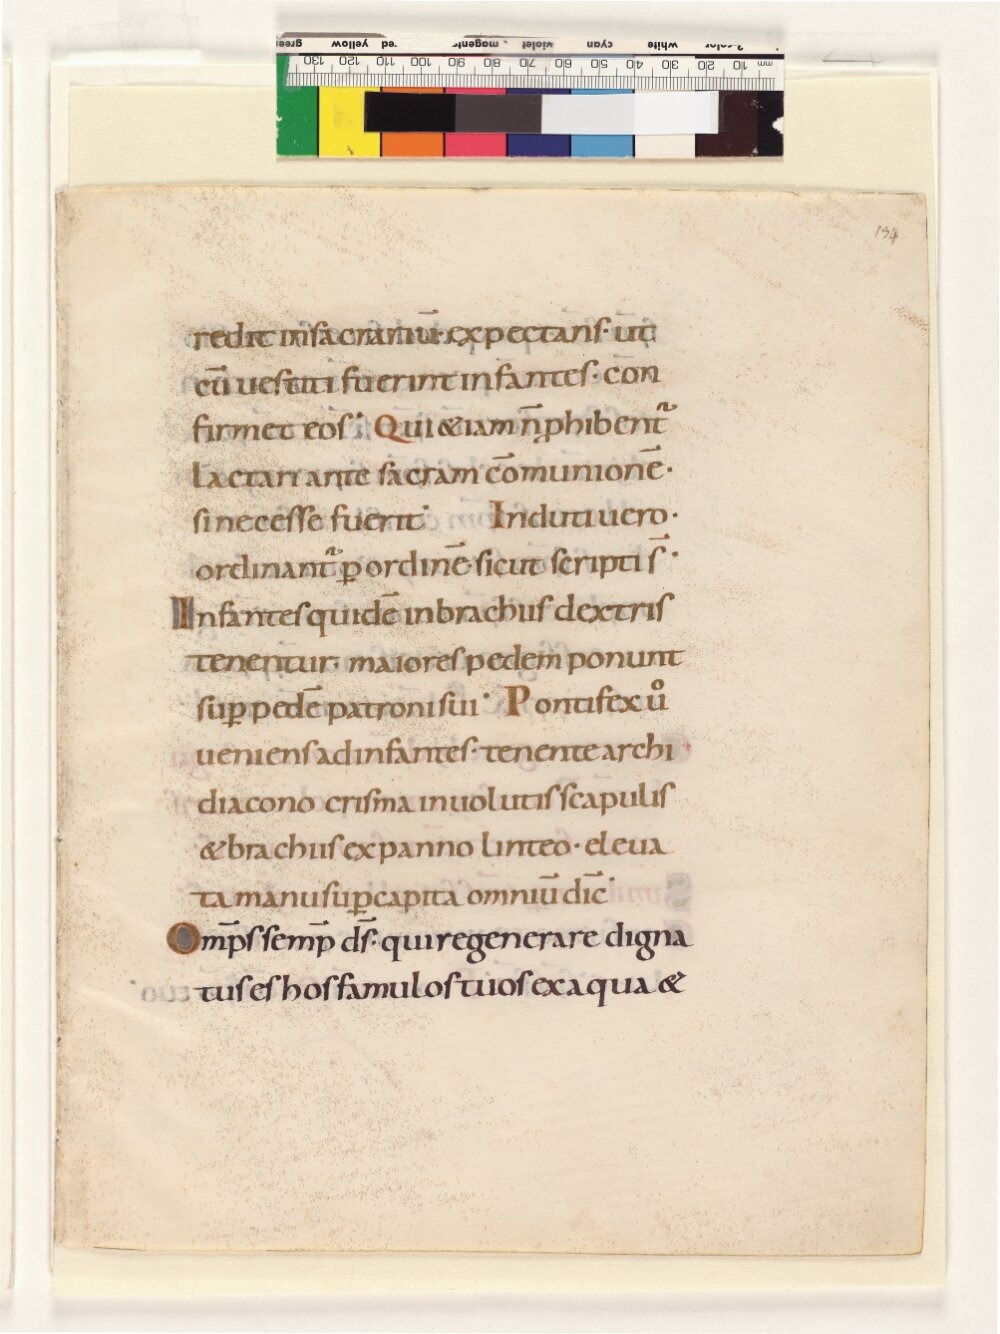 green yellow red magenta violet cyan white 3-color
mm 10 20 30 40 50 60 70 80 90 100 110 120 130
134
redit in sacrariū· expectans· ut
cū uestiti fuerint infantes· con
firmet eos· Qui &iam n̄ ꝓhibent᷑
lactari ante sacram cōmunionē·
si necesse fuerit· Induti uero·
ordinant᷑ ꝑ ordinē· sicut scripti s̄·
Infantes quidē in brachiis dextris
tenentur· maiores pedem ponunt
suꝑ pedē patroni sui· Pontifex ůo
ueniens ad infantes· tenente archi
diacono crisma inuolutis scapulis
& brachiis ex panno lineo· eleua
ta manu suꝑ capita omniū dic̄·
Omp̄s semp̄ ds̄· qui regenerare digna
tus es hos famulos tuos ex aqua &